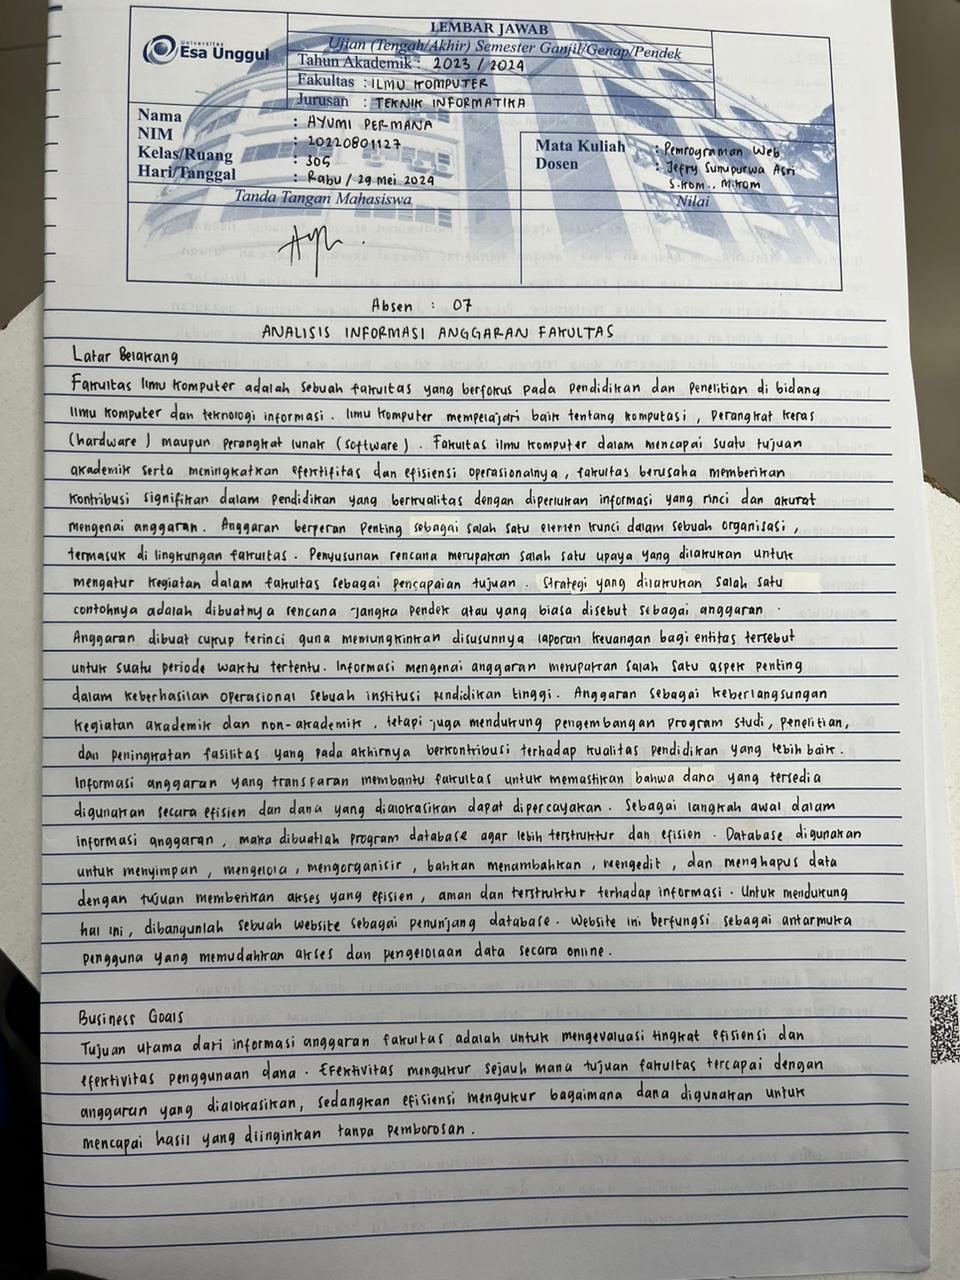 LEMBAR JAWAB
Universitas
Esa Unggul
Ujian (Tengah/Akhir) Semester Ganjil/Genap/Pendek
Tahun Akademik : 2023 / 2024
Fakultas : ILMU KOMPUTER
Jurusan : TEKNIK INFORMATIKA
Nama : AYUMI PERMANA
NIM : 20220801127
Kelas/Ruang : 305
Hari/Tanggal : Rabu / 29 Mei 2024
Mata Kuliah : Pemrograman Web
Dosen : Jefry Sunupurwa Asri
S.Kom., M.Kom
Tanda Tangan Mahasiswa
Nilai
Absen : 07
ANALISIS INFORMASI ANGGARAN FAKULTAS
Latar Belakang
Fakultas Ilmu Komputer adalah sebuah fakultas yang berfokus pada pendidikan dan penelitian di bidang
Ilmu komputer dan teknologi informasi. Ilmu komputer mempelajari baik tentang komputasi, perangkat keras
(hardware) maupun perangkat lunak (software). Fakultas ilmu komputer dalam mencapai suatu tujuan
akademik serta meningkatkan efektifitas dan efisiensi operasionalnya, fakultas berusaha memberikan
kontribusi signifikan dalam pendidikan yang berkualitas dengan diperlukan informasi yang rinci dan akurat
mengenai anggaran. Anggaran berperan penting sebagai salah satu elemen kunci dalam sebuah organisasi,
termasuk di lingkungan fakultas. Penyusunan rencana merupakan salah satu upaya yang dilakukan untuk
mengatur kegiatan dalam fakultas sebagai pencapaian tujuan. Strategi yang dilakukan salah satu
contohnya adalah dibuatnya rencana jangka pendek atau yang biasa disebut sebagai anggaran.
Anggaran dibuat cukup terinci guna memungkinkan disusunnya laporan keuangan bagi entitas tersebut
untuk suatu periode waktu tertentu. Informasi mengenai anggaran merupakan salah satu aspek penting
dalam keberhasilan operasional sebuah institusi pendidikan tinggi. Anggaran sebagai keberlangsungan
kegiatan akademik dan non-akademik, tetapi juga mendukung pengembangan program studi, penelitian,
dan peningkatan fasilitas yang pada akhirnya berkontribusi terhadap kualitas pendidikan yang lebih baik.
Informasi anggaran yang transparan membantu fakultas untuk memastikan bahwa dana yang tersedia
digunakan secara efisien dan dana yang dialokasikan dapat dipercayakan. Sebagai langkah awal dalam
informasi anggaran, maka dibuatlah program database agar lebih terstruktur dan efisien. Database digunakan
untuk menyimpan, mengelola, mengorganisir, bahkan menambahkan, mengedit, dan menghapus data
dengan tujuan memberikan akses yang efisien, aman dan terstruktur terhadap informasi. Untuk mendukung
hal ini, dibangunlah sebuah website sebagai penunjang database. Website ini berfungsi sebagai antarmuka
pengguna yang memudahkan akses dan pengelolaan data secara online.
Business Goals
Tujuan utama dari informasi anggaran fakultas adalah untuk mengevaluasi tingkat efisiensi dan
efektivitas penggunaan dana. Efektivitas mengukur sejauh mana tujuan fakultas tercapai dengan
anggaran yang dialokasikan, sedangkan efisiensi mengukur bagaimana dana digunakan untuk
mencapai hasil yang diinginkan tanpa pemborosan.